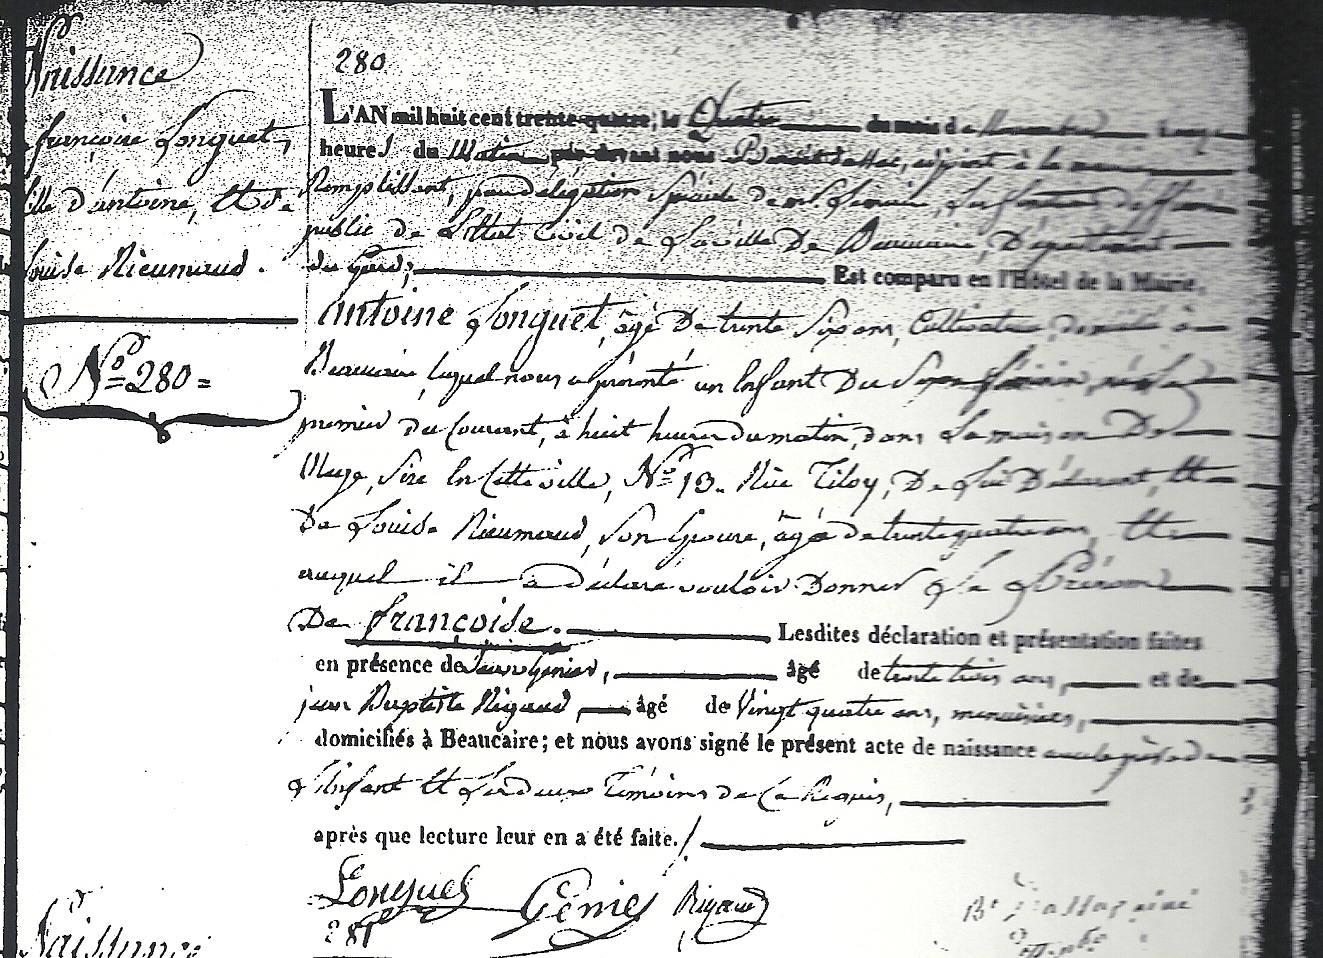 Naissance
françoise Longuet,
fille d'antoine, Et de
Louise Rieumaud.
Nº 280 =
280
L'AN mil huit cent trente-quatre, le Quatre du mois de Novembre
heures du Matin par-devant nous adjoint à la mairie
Remplissant, par délégation Spéciale de mr. Le maire, Les fonctions d'officier
public de L'Etat Civil de La ville De Beaucaire, Département
du Gard; Est comparu en l'Hôtel de la Mairie,
Antoine Longuet, âgé De trente Six ans, Cultivateur, domicilié à
Beaucaire lequel nous a présenté un Enfant Du Sexe féminin, née le
premier du Courant, à huit heures du matin, dans La maison De
Sise En Cette ville, Nº 13. Rue De Lui Déclarant, Et
De Louise Rieumaud, Son Epouse, âgée de trente quatre ans, Et
auquel il a Déclaré vouloir Donner Le Prénom
De françoise. Lesdites déclaration et présentation faites
en présence de Genies, âgé de trente trois ans, et de
jean Baptiste Rigaud, âgé de Vingt quatre ans, menuisiers,
domiciliés à Beaucaire; et nous avons signé le présent acte de naissance avec le père de
L'Enfant Et Les deux Témoins de Ce Requis,
après que lecture leur en a été faite./
Longuet Genies Rigaud
281
Naissance